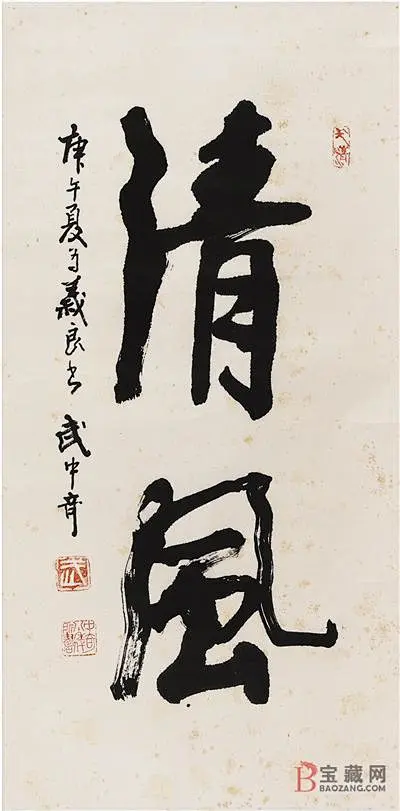 清風
庚午夏为義良书 武中奇
武
宝藏网
BAOZANG.COM